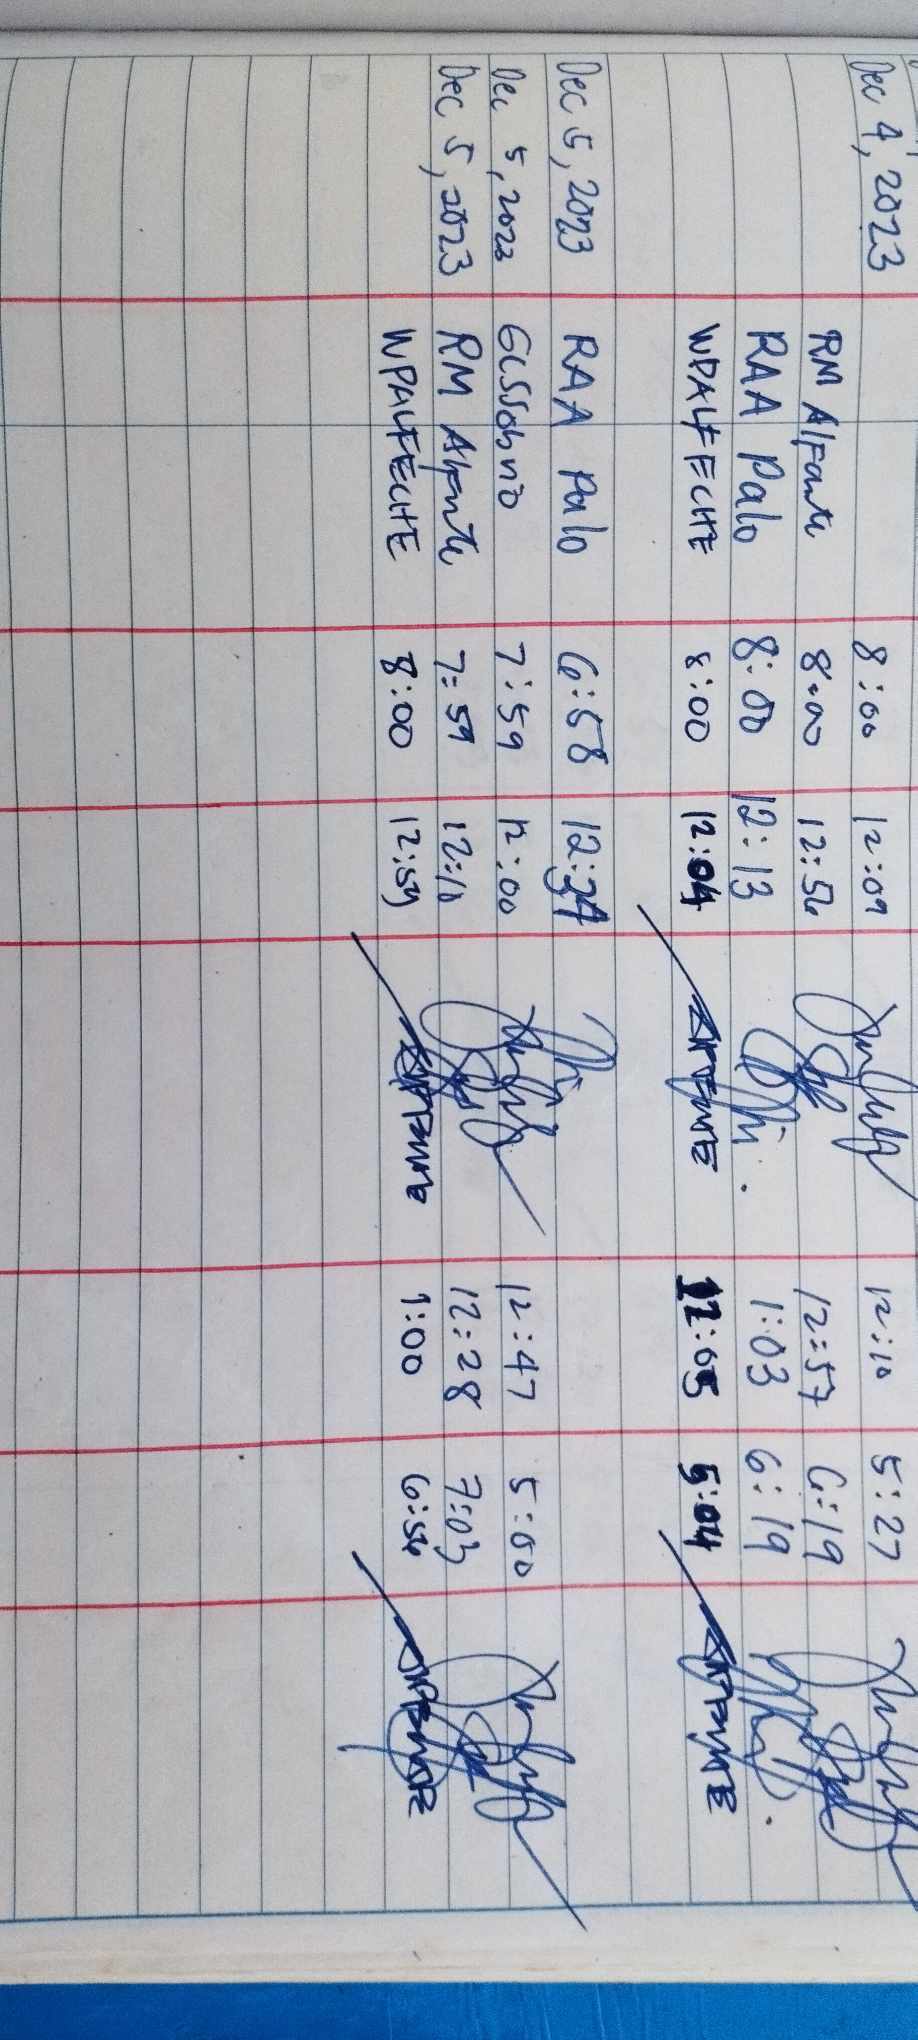 Dec 4, 2023 8:00 12:09 12:10 5:27
RM Alfante 8:00 12:56 12:57 6:19
RAA Palo 8:00 12:13 1:03 6:19
WPALFECHE 8:00 12:04 12:05 5:04
Dec 5, 2023 RAA Palo 6:58 12:34
Dec 5, 2023 7:59 12:00 12:47 5:00
Dec 5, 2023 RM Alfante 7:59 12:10 12:28 7:03
WPALFECHE 8:00 12:59 1:00 6:56